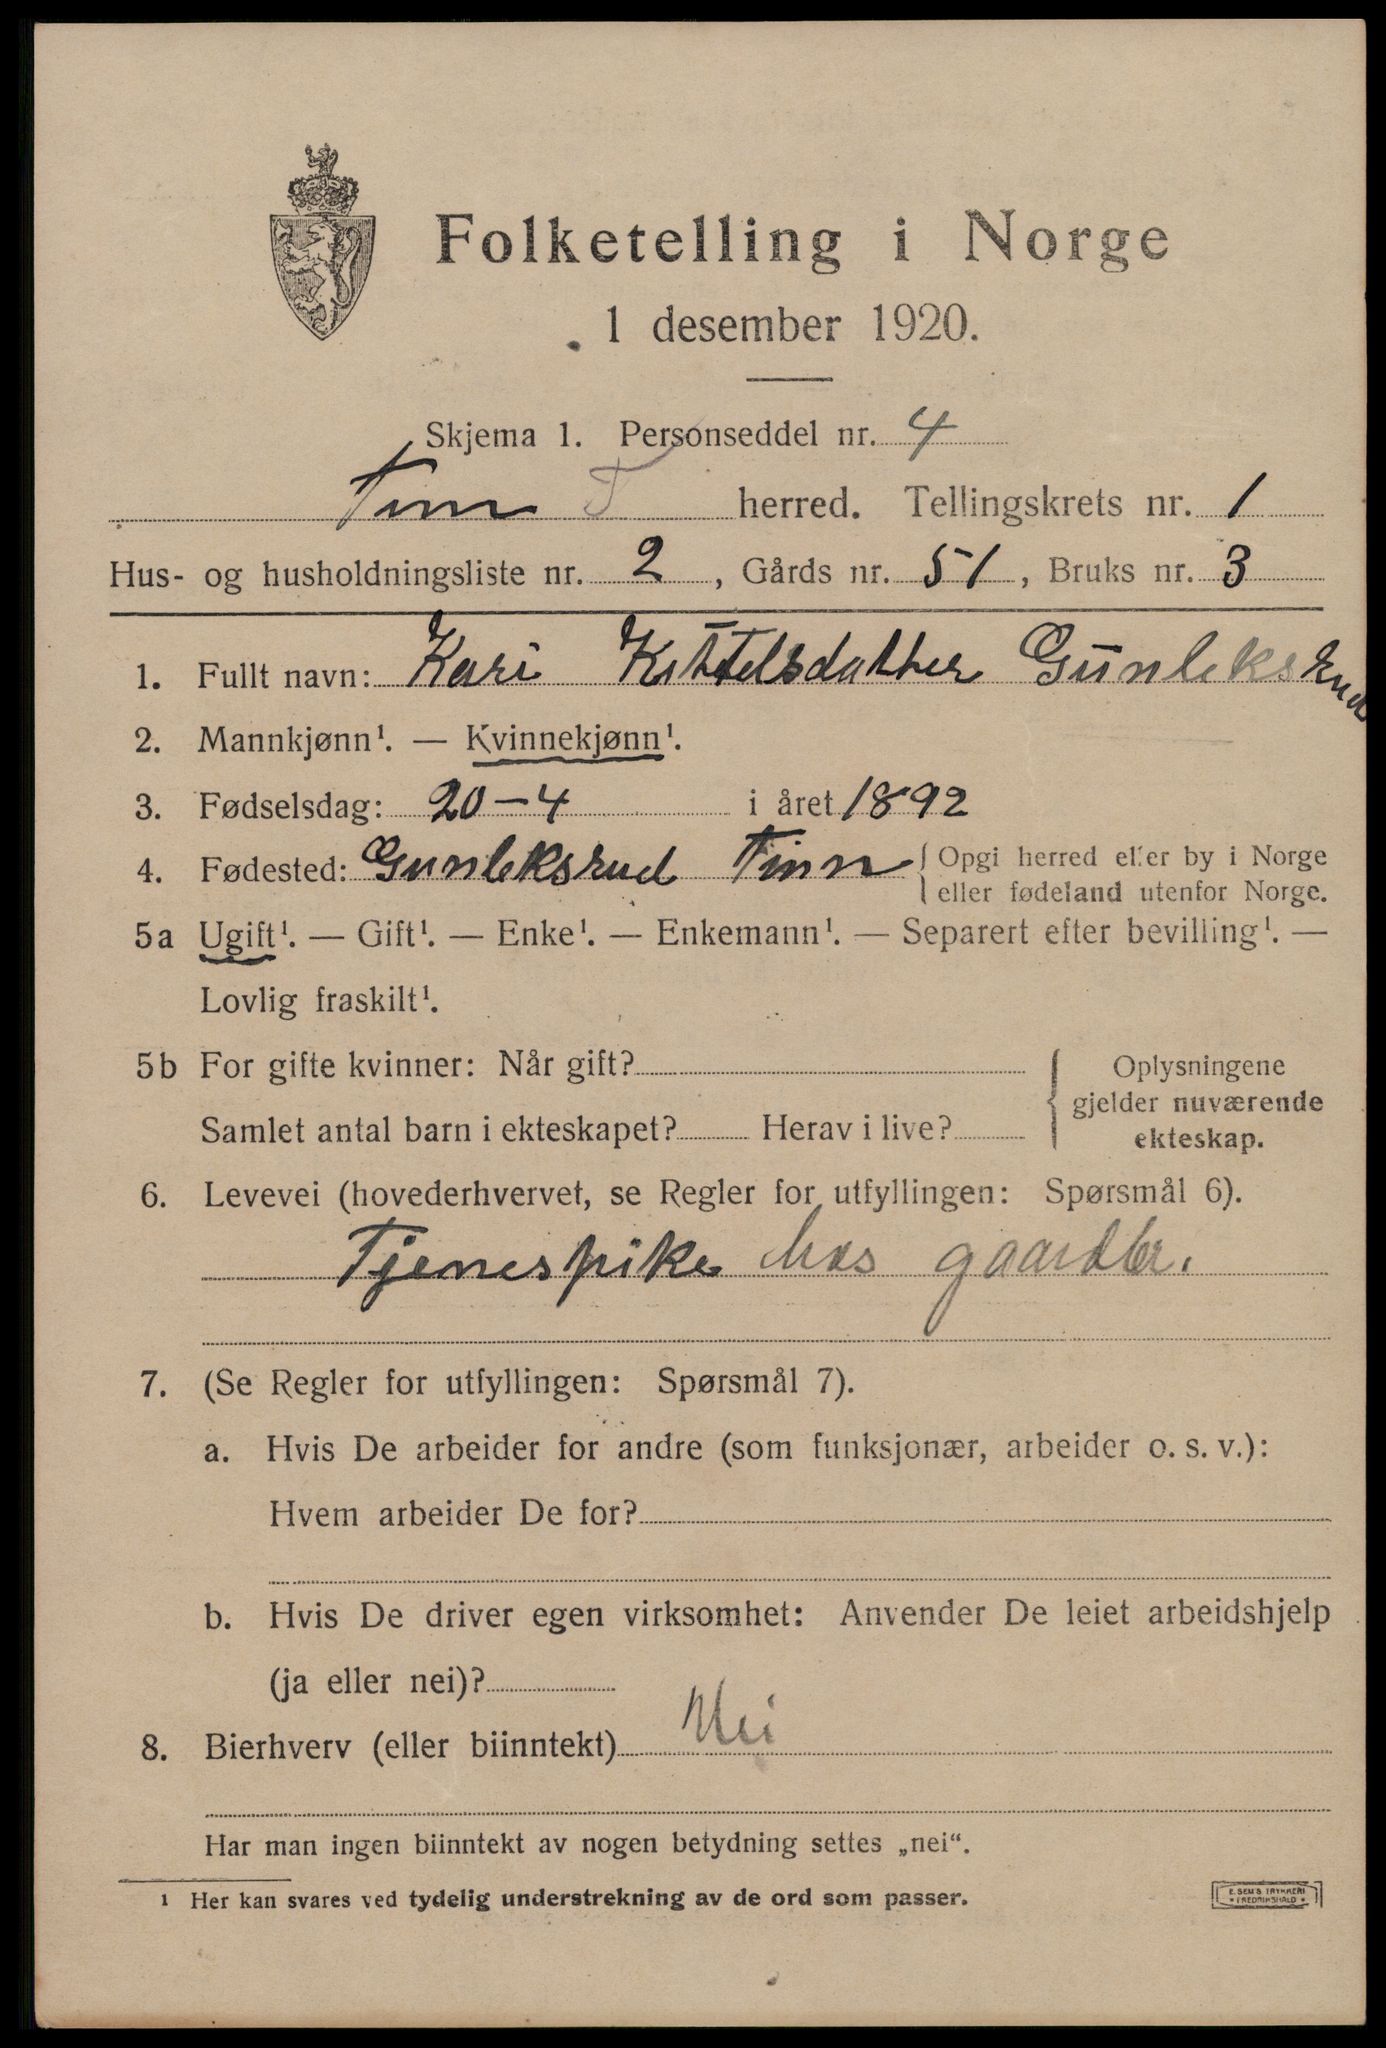 Folketelling i Norge
1 desember 1920.
Skjema 1. Personseddel nr. 4
Tinn T herred. Tellingskrets nr. 1
Hus- og husholdningsliste nr. 2, Gårds nr. 51, Bruks nr. 3
1. Fullt navn: Kari Kittelsdatter Gunleksrud
2. Mannkjønn¹. — Kvinnekjønn¹.
3. Fødselsdag: 20-4 i året 1892
4. Fødested: Gunleksrud Tinn { Opgi herred eller by i Norge
eller fødeland utenfor Norge.
5a Ugift¹. — Gift¹. — Enke¹. — Enkemann¹. — Separert efter bevilling¹. —
Lovlig fraskilt¹.
5b For gifte kvinner: Når gift?
Samlet antal barn i ekteskapet? Herav i live?
{ Oplysningene
gjelder nuværende
ekteskap.
6. Levevei (hovederhvervet, se Regler for utfyllingen: Spørsmål 6).
Tjenespike hos gaardbr.
7. (Se Regler for utfyllingen: Spørsmål 7).
a. Hvis De arbeider for andre (som funksjonær, arbeider o. s. v.):
Hvem arbeider De for?
b. Hvis De driver egen virksomhet: Anvender De leiet arbeidshjelp
(ja eller nei)?
8. Bierhverv (eller biinntekt) Nei
Har man ingen biinntekt av nogen betydning settes „nei“.
1 Her kan svares ved tydelig understrekning av de ord som passer.
E. SEM'S TRYKKERI
* FREDRIKSHALD *